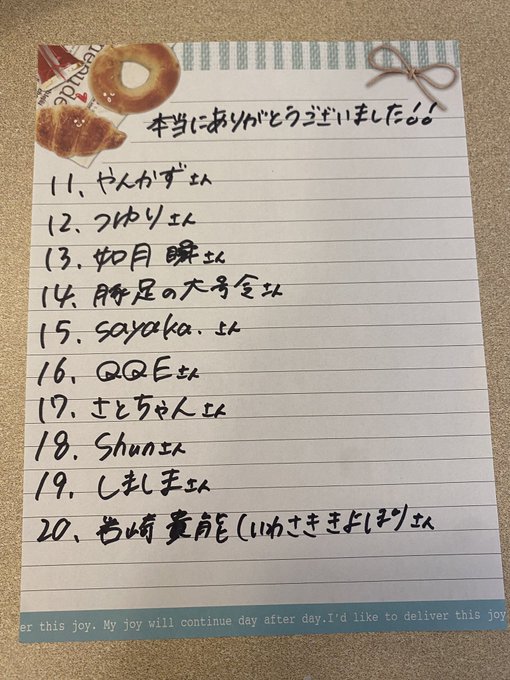 本当にありがとうございました!!
11、やんかずさん
12、つゆりさん
13、如月 瞬さん
14、豚足の大号令さん
15、sayaka.さん
16、QQEさん
17、さとちゃんさん
18、Shunさん
19、しましまさん
20、岩崎貴能(いわさききよしげ)さん
er this joy. My joy will continue day after day.I'd like to deliver this joy